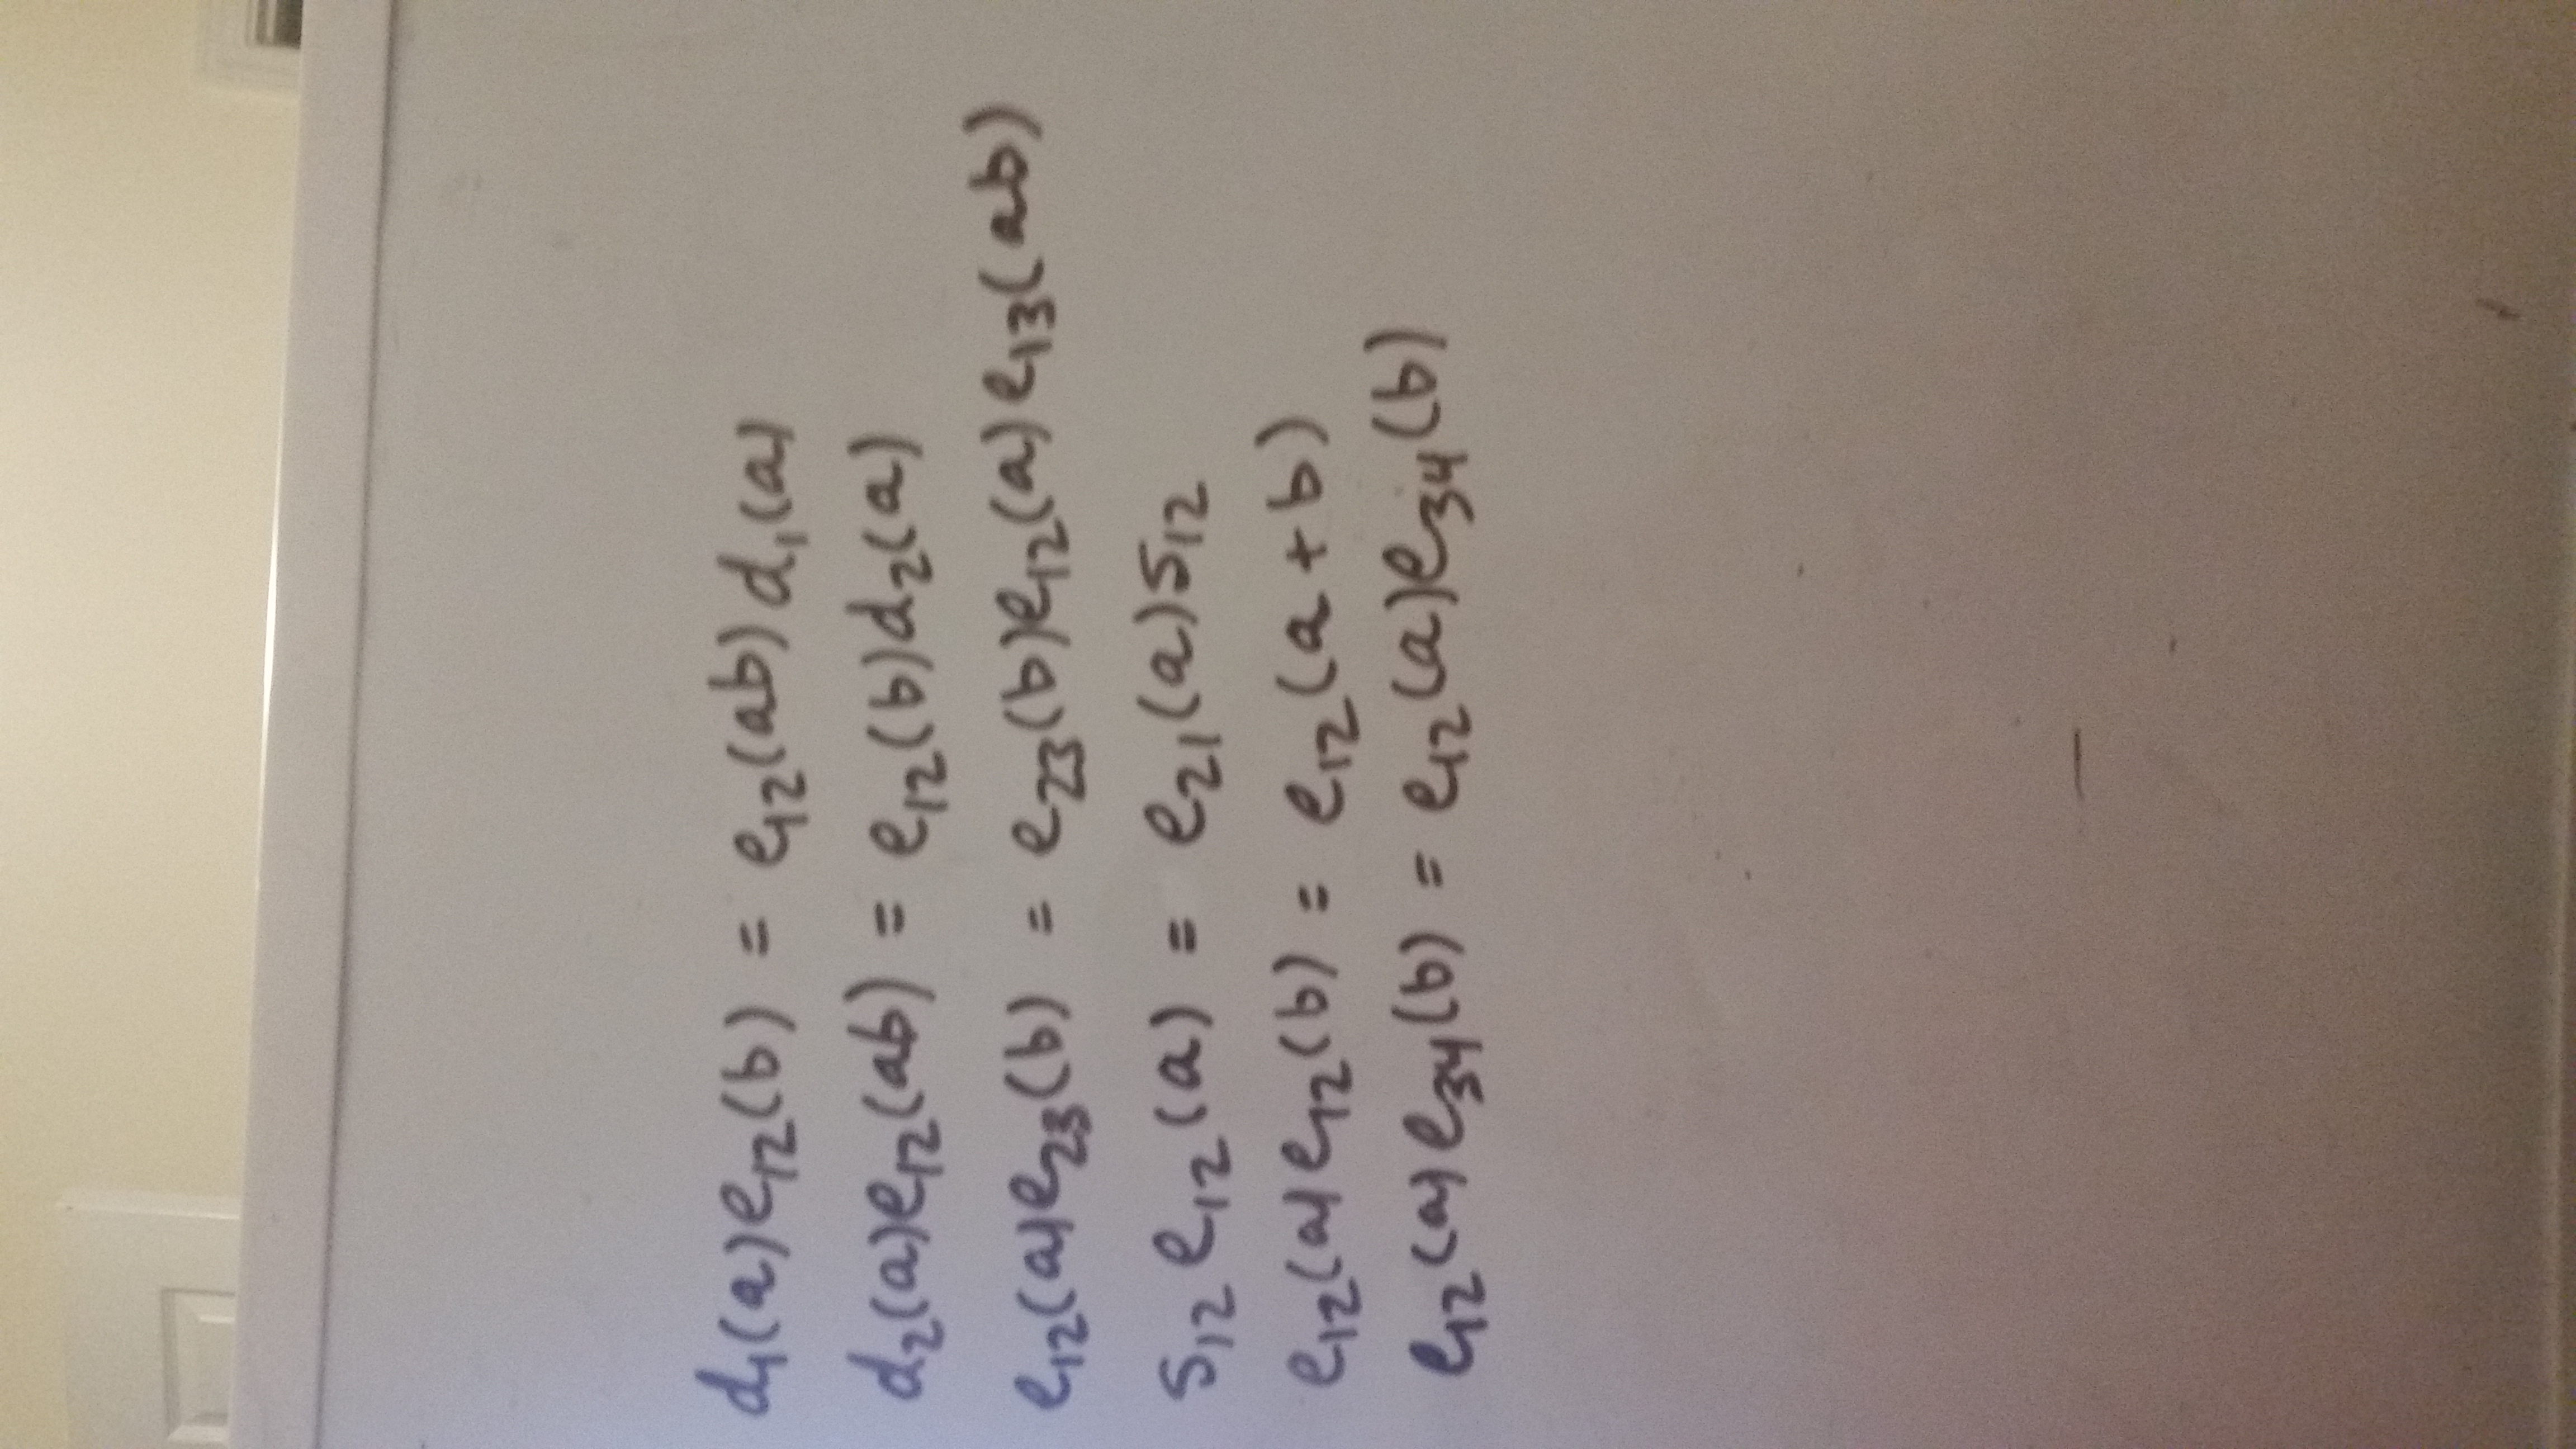 d₁(a)e₁₂(b) = e₁₂(ab)d₁(a)
d₂(a)e₁₂(ab) = e₁₂(b)d₂(a)
e₁₂(a)e₂₃(b) = e₂₃(b)e₁₂(a)e₁₃(ab)
s₁₂e₁₂(a) = e₂₁(a)s₁₂
e₁₂(a)e₁₂(b) = e₁₂(a+b)
e₁₂(a)e₃₄(b) = e₁₂(a)e₃₄(b)